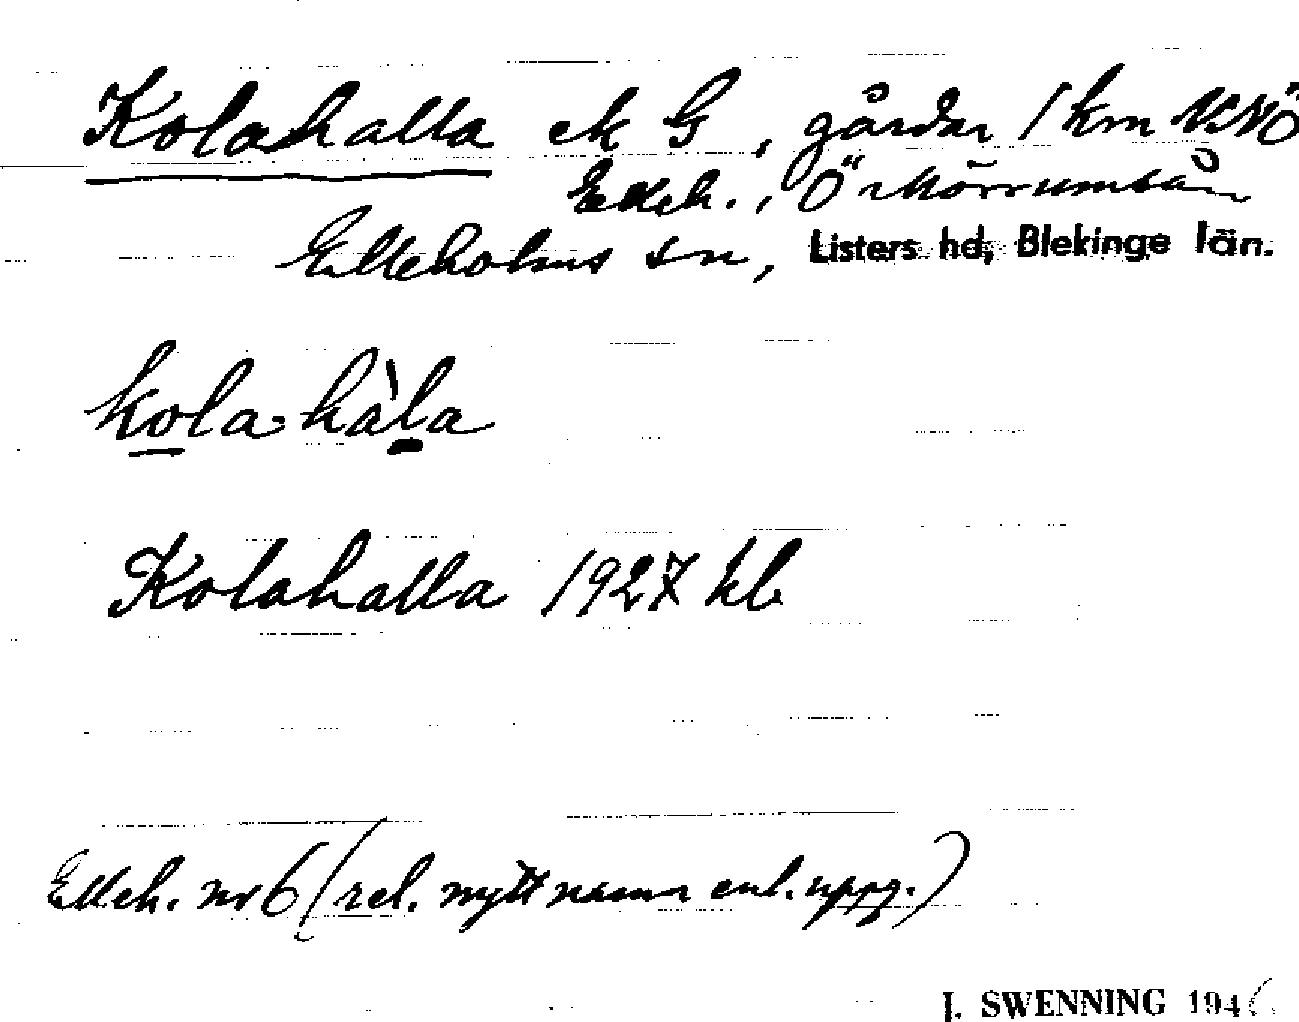 Kolahalla ek G, gårdar 1 km NNÖ
Elleh., Ö Mörrumsån
Elleholms sn, Listers hd, Blekinge län.
kola-hàla
Kolahalla 1927 kb
Elleh. nr 6 (rel. nytt namn enl. uppg.)
J. SWENNING 194